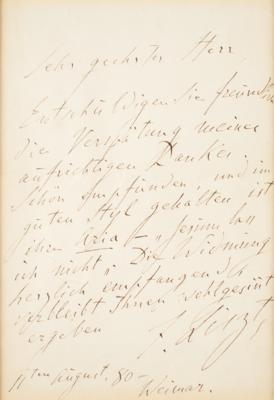 Sehr geehrter Herr,
Entschuldigen Sie freundlichst
die Verspätung meines
aufrichtigen Dankes.
Schön empfunden, und im
guten Styl gehalten ist
ihre Aria — "Jesum lass
ich nicht". Die Widmung
herzlich empfangend
verbleibt Ihnen wohlgesinnt
ergeben
F. Liszt
August, 80 —
Weimar.